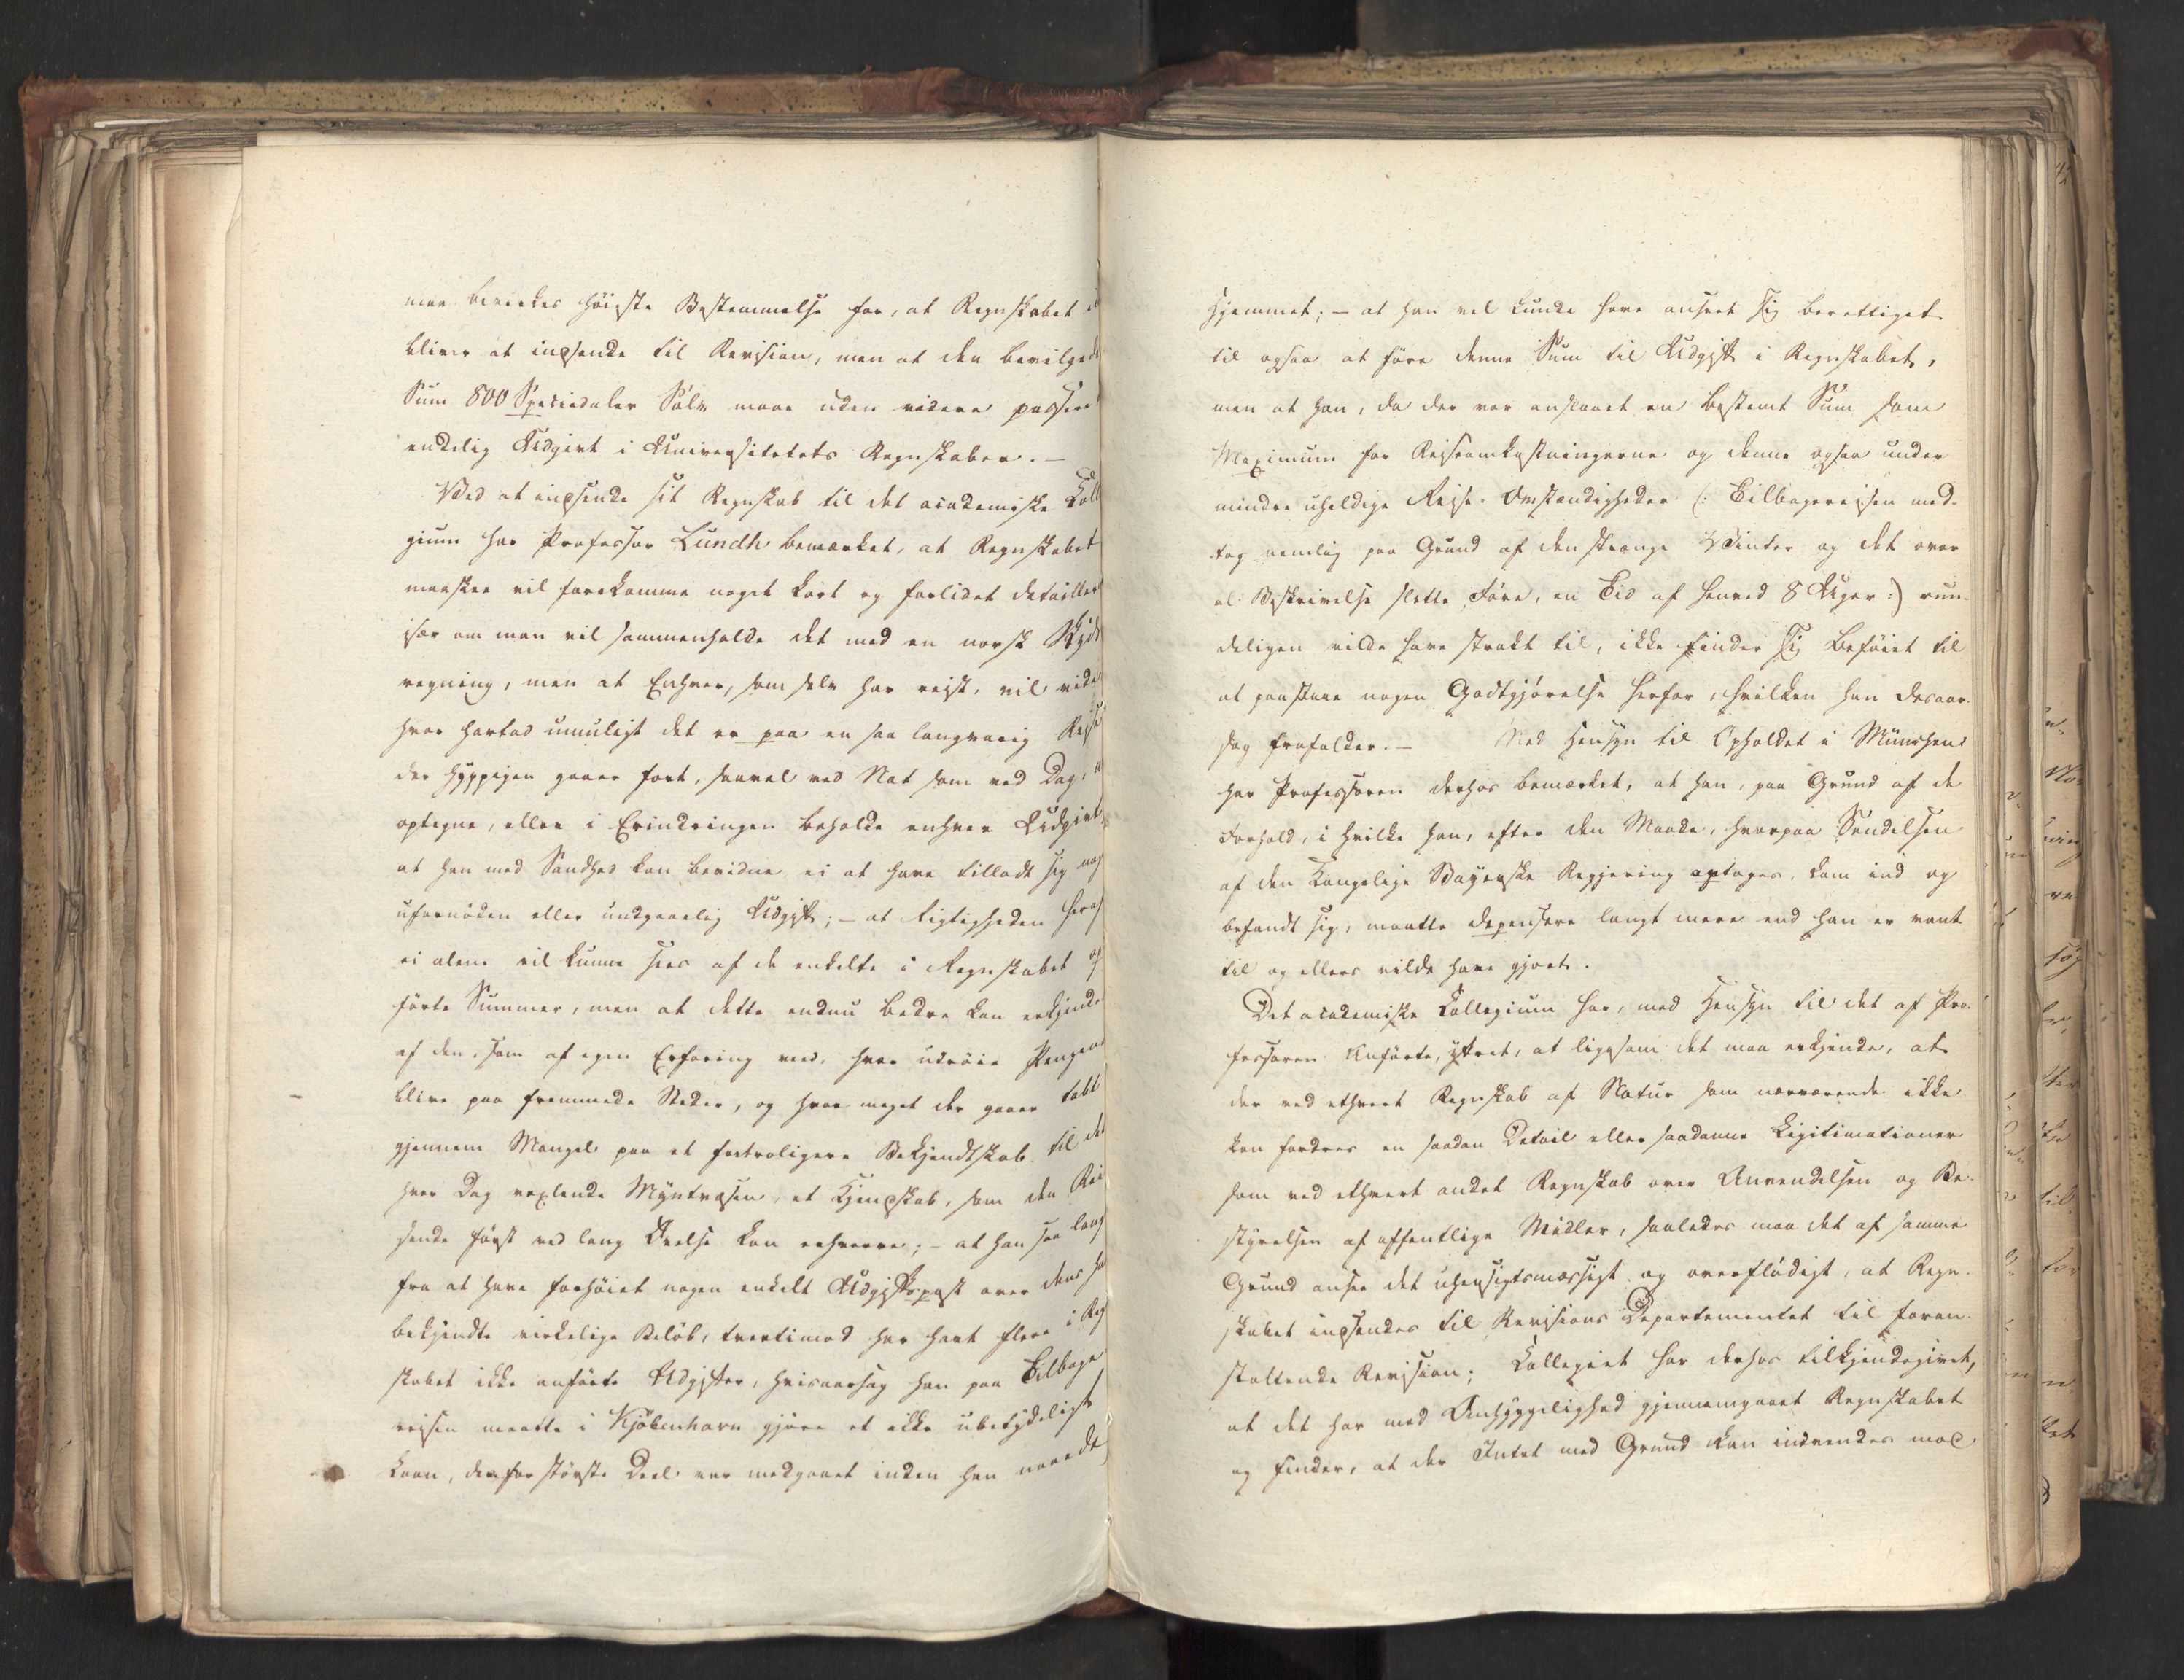 maa bevirkes høieste Bestemmelse for, at Regnskabet
bliver at indsende til Revision, men at den bevilgede
Sum 800 Speciedaler Sølv maae uden videre passere
endelig Udgivt i Universitetets Regnskaber. —
Ved at indsende sit Regnskab til det academiske Coll
gium har Professor Lundh bemærket, at Regnskabet
maaskee vil forekomme noget kort og forlidet detailleret
især om man vil sammenholde det med en norsk Skyds
regning, men at Enhver, som selv har reist, vil vide
hvor hartad umuligt det er paa en saa langvarig Reise
der hyppigen gaaer fort, saavel ved Nat som ved Dag, at
optegne, eller i Erindringen beholde enhver Udgivt,
at han med Sandhed kan bevidne ei at have tilladt sig nog
ufornøden eller undgaaelig Udgift; — at Rigtigheden heraf
ei alene vil kunne sees af de enkelte i Regnskabet op
førte Summer, men at dette endnu bedre kan erkjendes
af den, som af egen Erfaring veed, hvor udrøie Pengene
blive paa fremmede Steder, og hvor meget der gaaer tabt
gjennem Mangel paa et fortroligere Bekjendtskab til det
hver Dag vexlende Myntvæsen, et Kjendskab, som den Rei
sende først ved lang Øvelse kan erhverve; — at han saa langt
fra at have forhøiet nogen enkelt Udgiftspost over dens ham
bekjendte virkelige Beløb, tvertimod har havt flere i Reg
skabet ikke anførte Udgifter, hvisaarsag han paa Tilbage
reisen maatte i Kjøbenhavn gjøre et ikke ubetydeligt
Laan, der for største Deel var medgaaet inden han naaede
Hjemmet; — at han vel kunde have anseet sig berettiget
til ogsaa at føre denne Sum til Udgift i Regnskabet,
men at han, da der var anslaaet en bestemt Sum som
Maximum for Reiseomkostningerne og denne ogsaa under
mindre uheldige Reise-Omstændigheder (: Tilbagereisen med-
tog nemlig paa Grund af den strænge Vinter og det over
al Beskrivelse slette Føre, en Tid af henved 8 Uger :) run-
deligen vilde have strakt til, ikke finder sig beføiet til
at paastaae nogen Godtgjørelse herfor, hvilken han desaar-
sag frafalder. — Med Hensyn til Opholdet i München
har Professoren derhos bemærket, at han, paa Grund af de
Forhold, i hvilke han, efter den Maade, hvorpaa Sendelsen
af den Kongelige Bayerske Regjering optoges, kom ind og
befandt sig, maatte depensere langt mere end han er vant
til og ellers vilde have gjort.
Det academiske Collegium har, med Hensyn til det af Pro-
fessoren Anførte, yttret, at ligesom det maa erkjende, at
der ved ethvert Regnskab af Natur som nærværende ikke
kan fordres en saadan Detail eller saadanne Legitimationer
som ved ethvert andet Regnskab over Anvendelsen og Be-
styrelsen af offentlige Midler, saaledes maa det af samme
Grund ansee det uhensigtsmæssigt og overflødigt, at Regn-
skabet indsendes til Revisions Departementet til foran-
staltende Revision; Collegiet har derhos tilkjendegivet,
at det har med Omhyggelighed gjennemgaaet Regnskabet
og finder, at der Intet med Grund kan indvendes mod